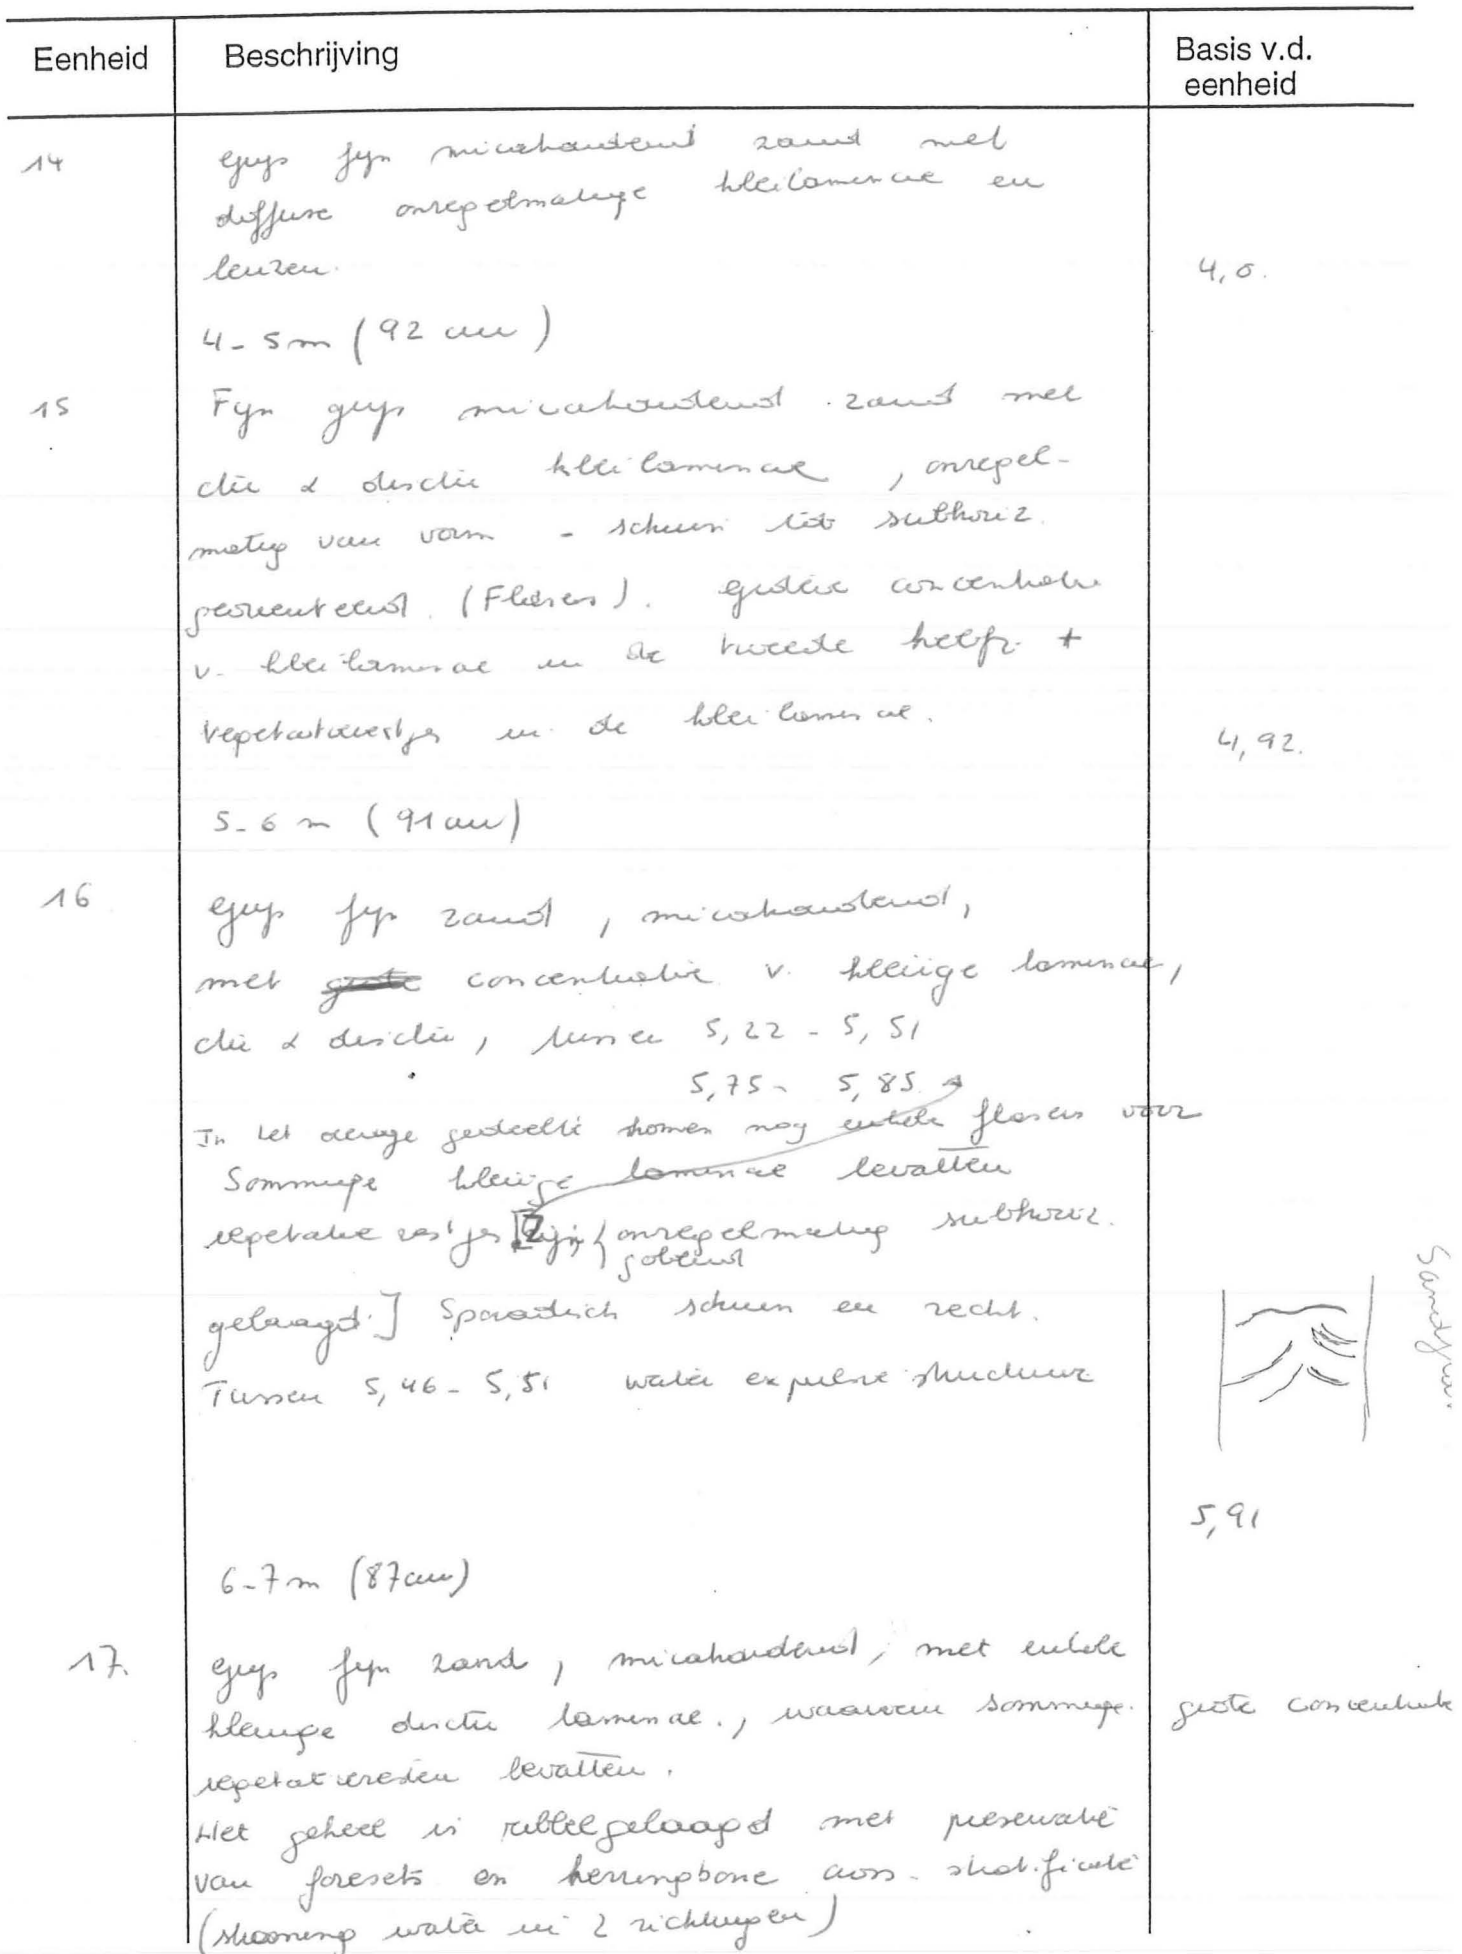 Eenheid Beschrijving Basis v.d.
eenheid
14 Grijs fijn micahoudend zand met
diffuse onregelmatige kleilaminae en
lenzen. 4,0.
4-5m (92 cm)
15 Fijn grijs micahoudend zand met
die & disctie kleilaminae, onregel-
matig van vorm - schuin tot subhoriz.
georienteerd. (Flasers). Grotere concentratie
v. kleilaminae in de tweede helft +
vegetatierestjes in de kleilaminae. 4,92.
5-6 m (91 cm)
16 Grijs fijn zand, micahoudend,
met grote concentratie v. kleiige laminae,
die & disctie, tussen 5,22 - 5,51
5,75 - 5,85
In het overige gedeelte komen nog enkele flasers voor
Sommige kleiige laminae bevatten
vegetatie restjes [Zijn onregelmatig subhoriz.
golvend
gelaagd.] Sporadisch schuin en recht.
Tussen 5,46 - 5,51 water expulsie structuur
5,91
6-7m (87cm)
17. Grijs fijn zand, micahoudend, met enkele
kleiige disctie laminae., waarvan sommige. grote concentratie
vegetatieresten bevatten.
Het geheel is ribbelgelaagd met preservatie
van foresets en herringbone cross-stratificatie
(stroming water in 2 richtingen)